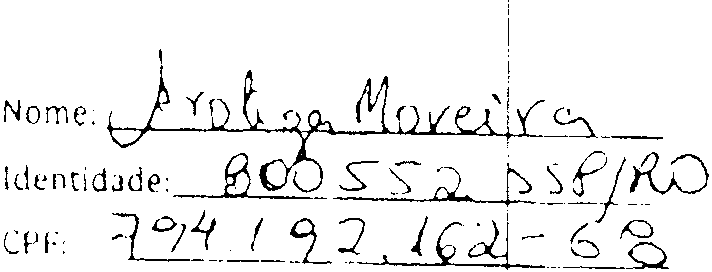 Nome: Moreira
Identidade: 800552 SSP/RO
CPF: 794.192.162-68